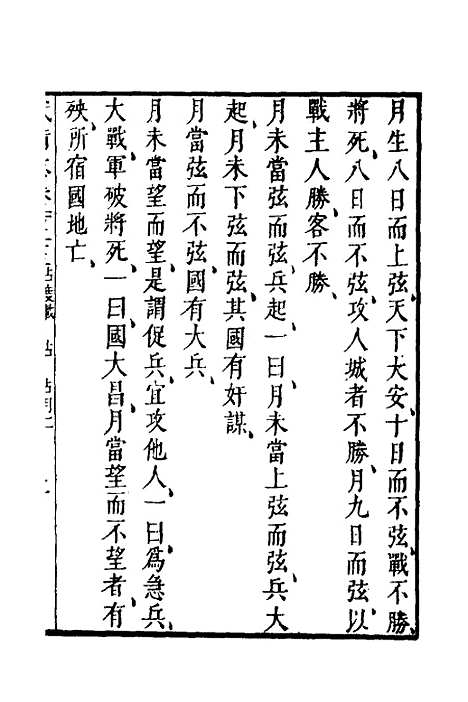 月生八日而上弦、天下大安、十日而不弦、戰不勝、
將死、八日而不弦、攻人城者不勝、月九日而弦、以
戰主人勝、客不勝、
月未當弦而弦、兵起、一曰、月未當上弦而弦、兵大
起、月未下弦而弦、其國有奸謀、
月當弦而不弦、國有大兵、
月未當望而望、是謂促兵、宜攻他人、一曰爲急兵、
大戰、軍破將死、一曰國大昌、月當望而不望者、有
殃、所宿國地亡、